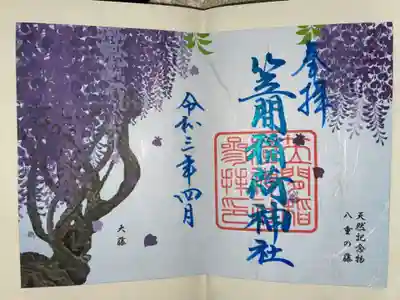 奉拝
笠間稲荷神社
天然記念物
八重の藤
令和三年四月
大藤